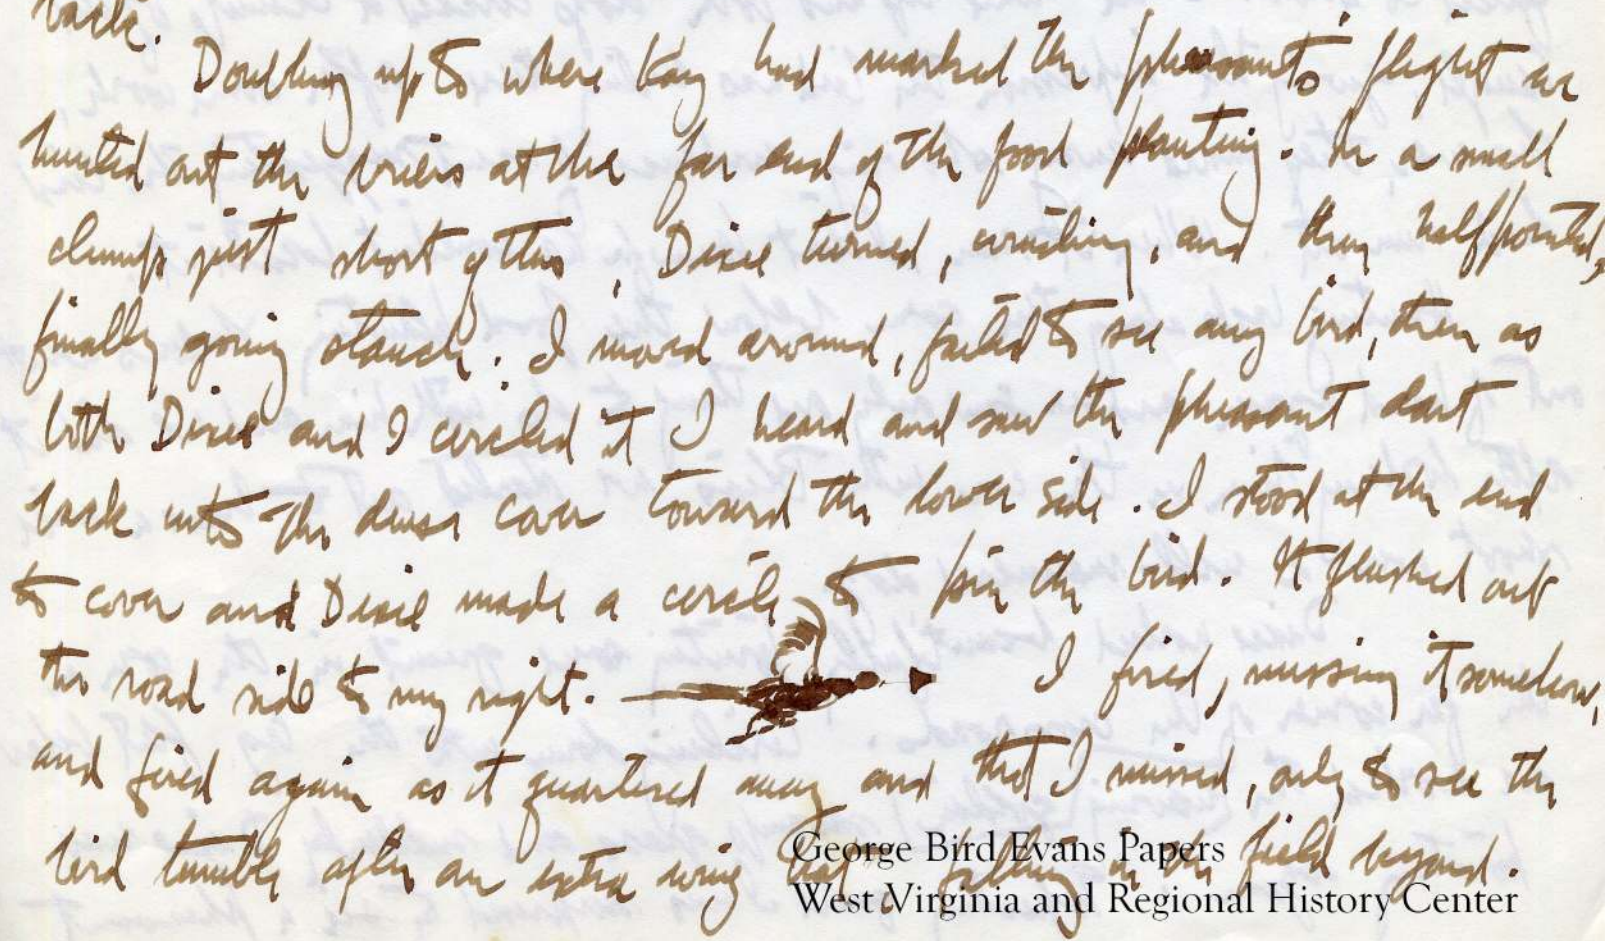 back.
Doubling up to where Kay had marked the pheasant's flight we
hunted out the briers at the far end of the food planting. In a small
clump just short of this, Dixie turned, circling, and then half pointed,
finally going staunch. I moved around, failed to see any bird, then as
both Dixie and I circled it I heard and saw the pheasant dart
back into the dense cover toward the lower side. I stood at the end
to cover and Dixie made a circle to pin the bird. It flushed out
the road side to my right. I fired, missing it somehow,
and fired again as it quartered away and thot I missed, only to see the
bird tumble after an extra wing beat, falling in the field beyond.
George Bird Evans Papers
West Virginia and Regional History Center